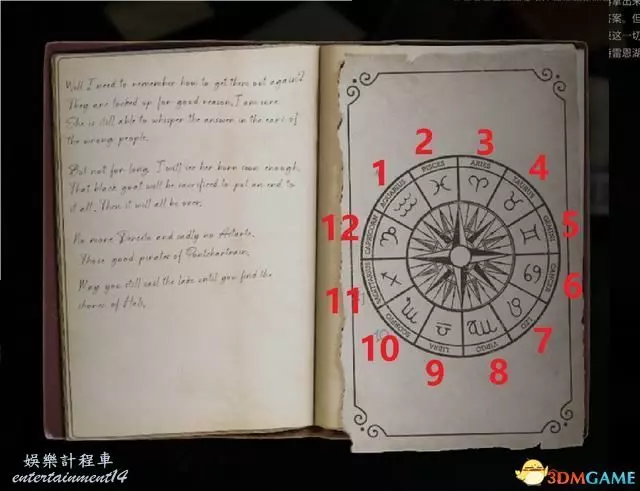 Will I need to remember how to get them out again?
They are locked up for good reason, I am sure.
She is still able to whisper the answer in the ears of
the wrong people.
But not for long. I will see her burn soon enough.
That black goat will be sacrificed to put an end to
it all. Then it will all be over.
No more Parcels and sadly no Astarte.
Those good pirates of Pontchartrain.
May you still sail the lake until you find the
shores of
1
2
3
4
5
6
7
8
9
10
11
12
AQUARIUS
PISCES
ARIES
TAURUS
GEMINI
CANCER
LEO
VIRGO
LIBRA
SCORPIO
SAGITTARIUS
CAPRICORN
娛樂計程車
entertainment14
3DMGAME